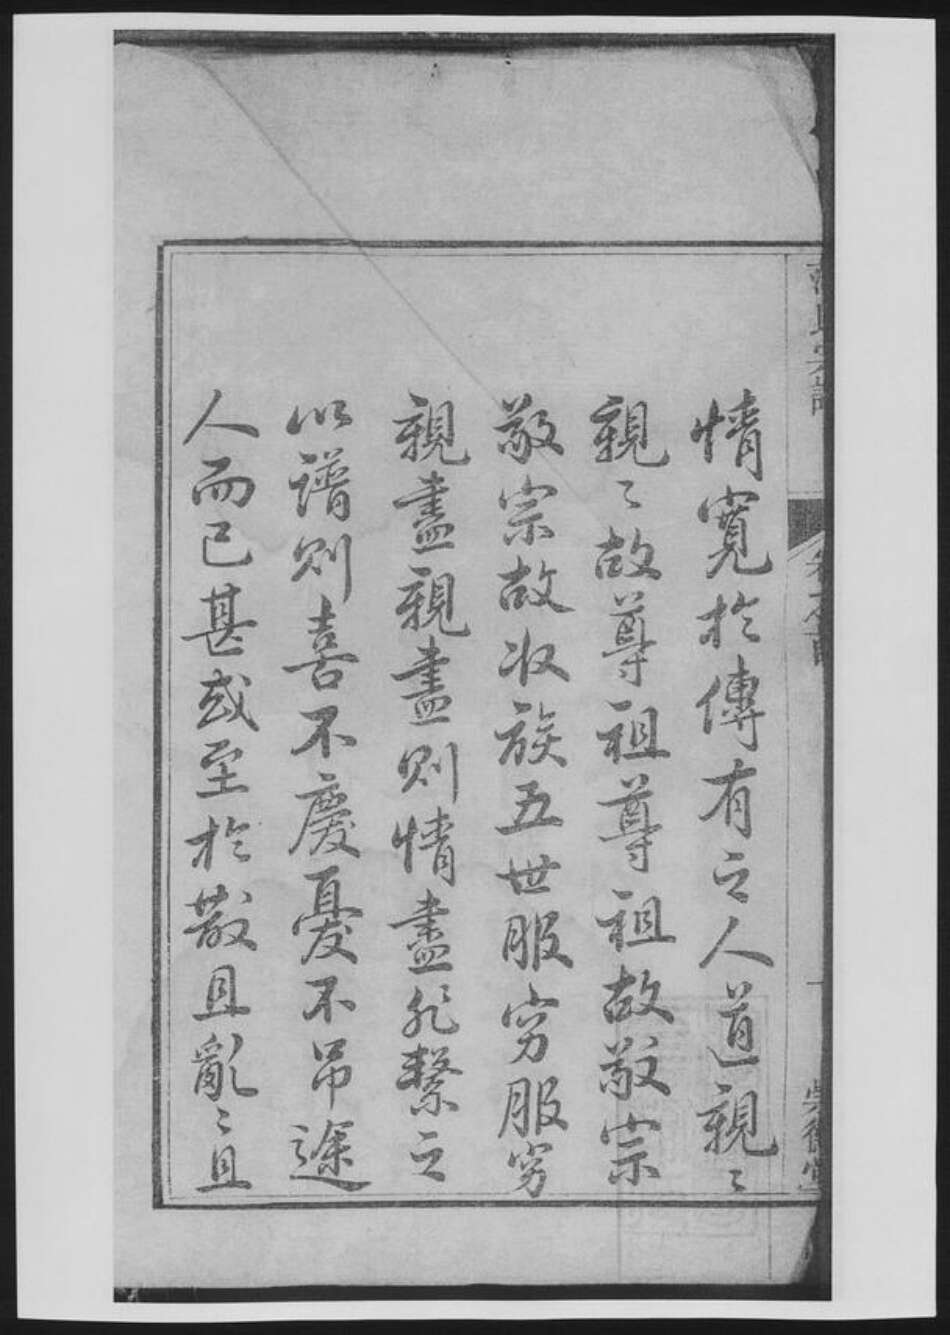 情寬於傳有之人道親〻
親〻故尊祖尊祖故敬宗
敬宗故收族五世服窮服窮
親盡親盡則情盡非繫之
以譜則喜不慶憂不吊途
人而已甚或至於散且亂〻且